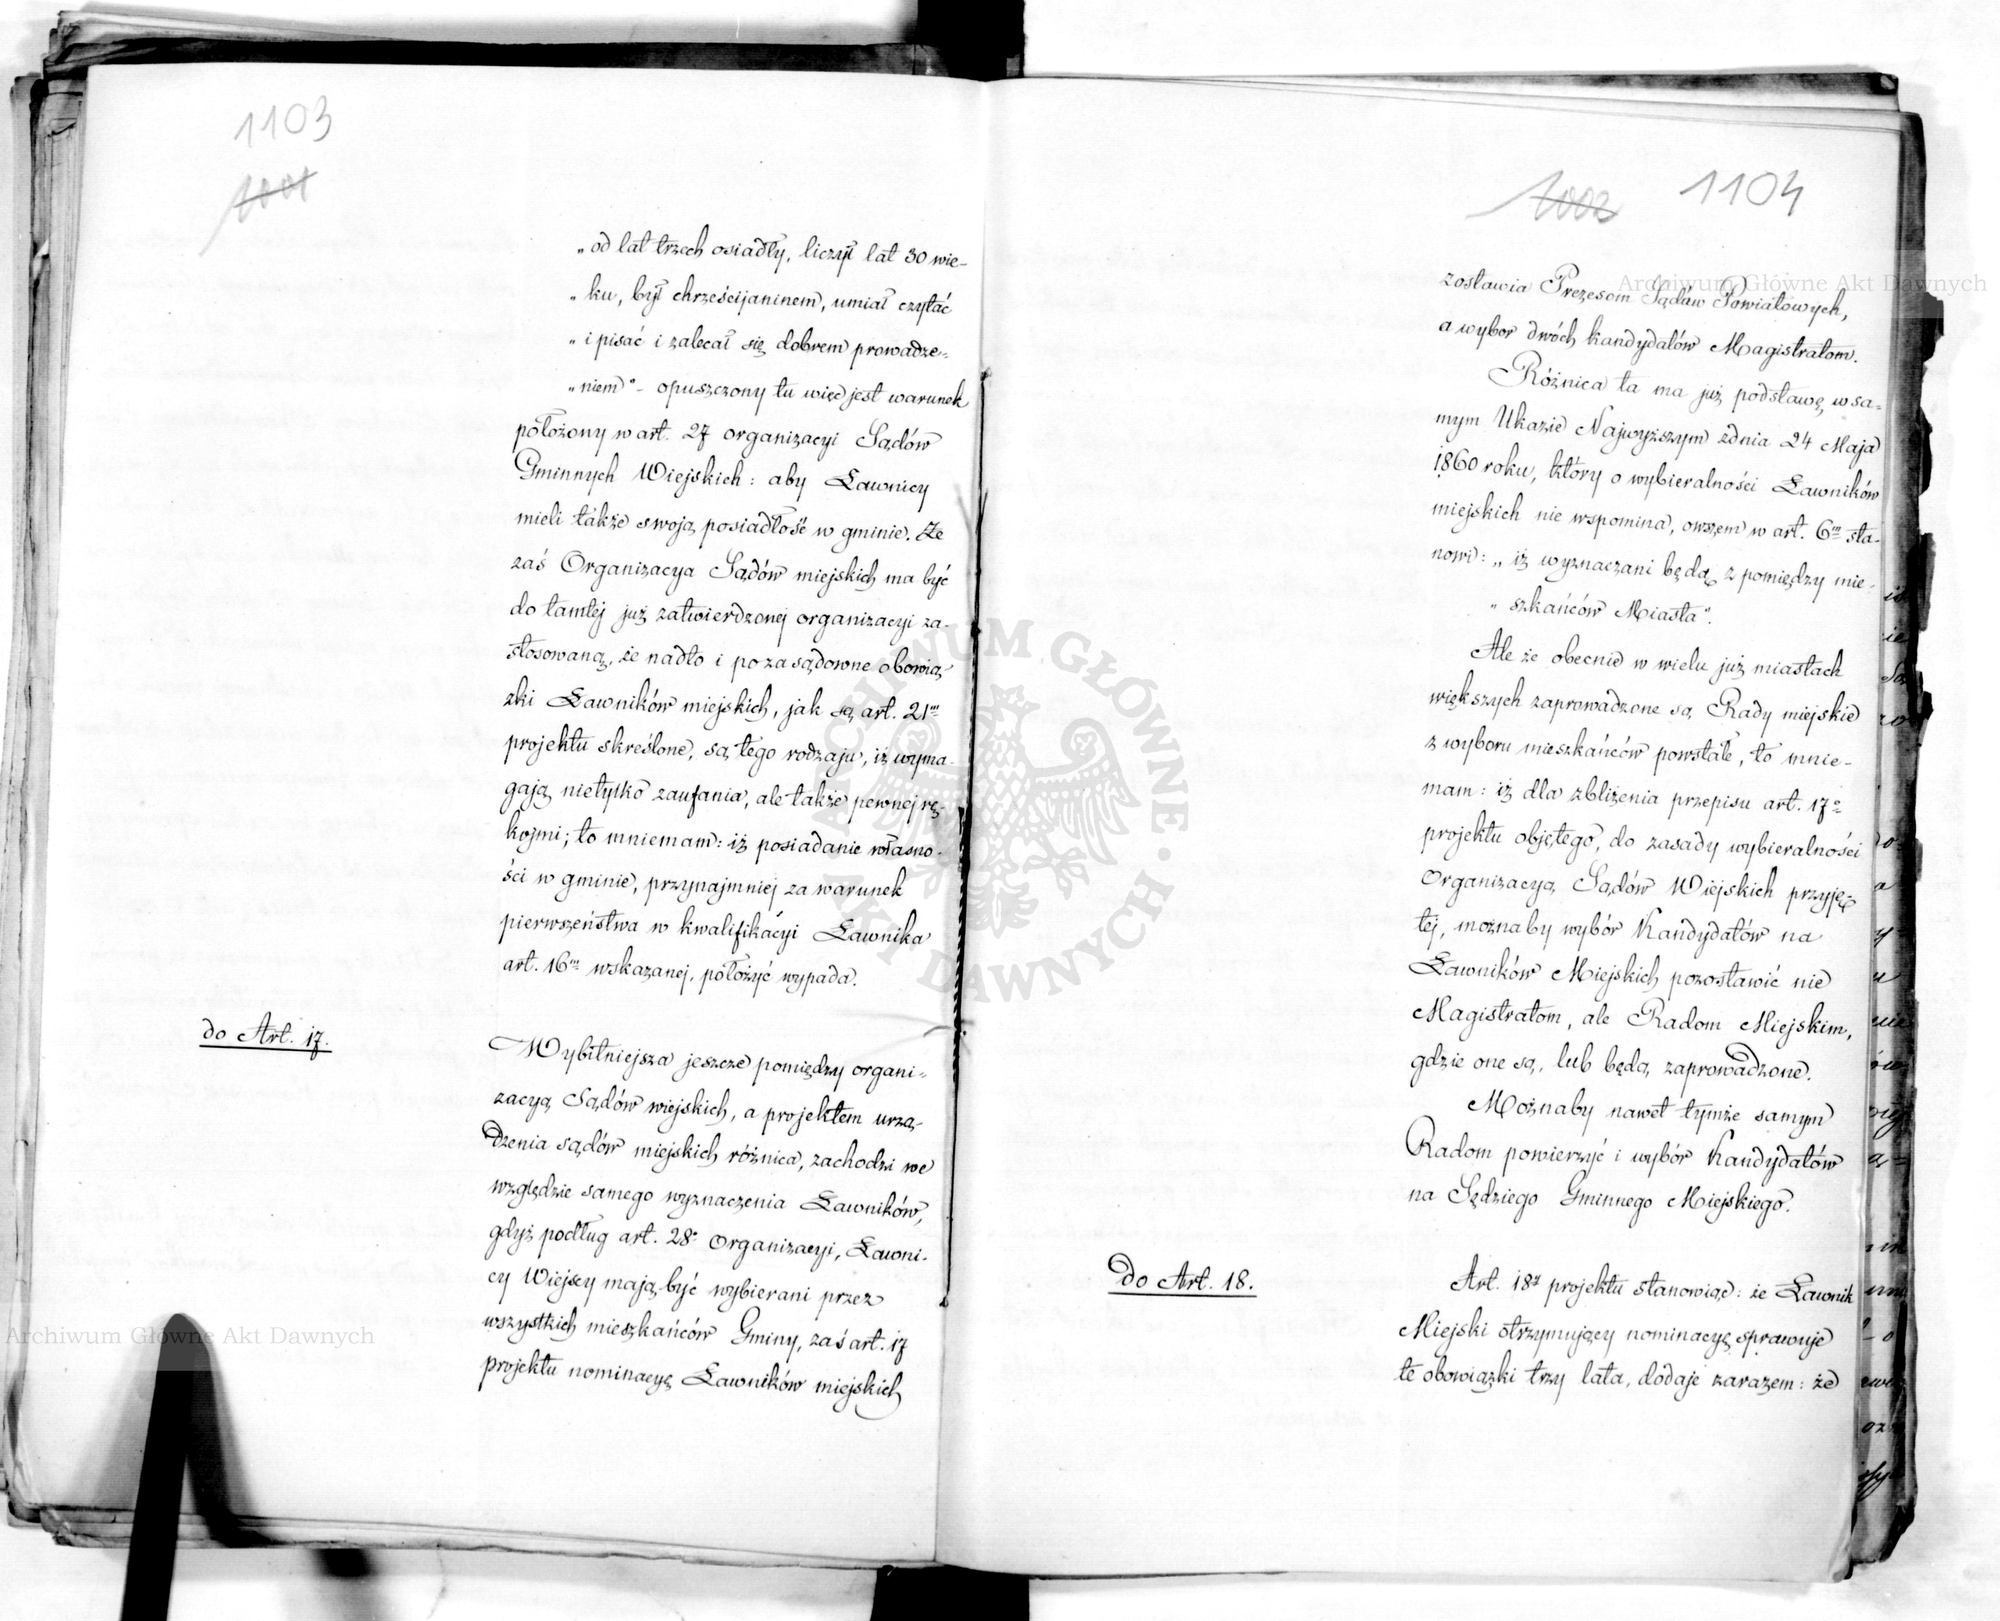 1103
1001
„od lat trzech osiadły, liczył lat 30 wie-
„ku, był chrześcijaninem, umiał czytać
„i pisać i zalecał się dobrem prowadze-
„niem” – opuszczony tu więc jest warunek
położony w art. 27 organizacyi Sądów
Gminnych Wiejskich: aby Ławnicy
mieli także swoją posiadłość w gminie. Że
zaś Organizacya Sądów miejskich ma być
do tamtej już zatwierdzonej organizacyi za-
stosowaną, że nadto i poza sądowne obowią-
zki Ławników miejskich, jak są art. 21m
projektu skreślone, są tego rodzaju, iż wyma-
gają nietylko zaufania, ale także pewnej rę-
kojmi; to mniemam: iż posiadanie własno-
ści w gminie, przynajmniej za warunek
pierwszeństwa w kwalifikacyi Ławnika
art. 16m wskazanej, położyć wypada.
do Art. 17.
Wybitniejsza jeszcze pomiędzy organi-
zacyą Sądów wiejskich, a projektem urzą-
dzenia sądów miejskich różnica, zachodzi we
względzie samego wyznaczenia Ławników,
gdyż podług art. 28o organizacyi, Ławni-
cy Wiejscy mają być wybierani przez
wszystkich mieszkańców Gminy, zaś art. 17
projektu nominacyę Ławników miejskich
1002 1104
zostawia Prezesom Sądów Powiatowych,
a wybor dwóch kandydatów Magistratom.
Różnica ta ma już podstawę w sa-
mym Ukazie Najwyższym z dnia 24 Maja
1860 roku, który o wybieralności Ławników
miejskich nie wspomina, owszem w art. 6m sta-
nowi: „iż wyznaczani będą z pomiędzy mie-
„szkańców Miasta”.
Ale że obecnie w wielu już miastach
większych zaprowadzone są Rady miejskie
z wyboru mieszkańców powstałe, to mnie-
mam: iż dla zbliżenia przepisu art. 17o
projektu objętego, do zasady wybieralności
organizacyą Sądów Wiejskich przyję-
tej, możnaby wybór Kandydatów na
Ławników Miejskich pozostawić nie
Magistratom, ale Radom Miejskim,
gdzie one są, lub będą zaprowadzone.
Możnaby nawet tymże samym
Radom powierzyć i wybór Kandydatów
na Sędziego Gminnego Miejskiego.
do Art. 18.
Art. 18y projektu stanowiąc: że Ławnik
Miejski otrzymujący nominacyę sprawuje
te obowiązki trzy lata, dodaje zarazem: że
Archiwum Główne Akt Dawnych
Archiwum Główne Akt Dawnych
ARCHIWUM GŁÓWNE · AKT DAWNYCH ·